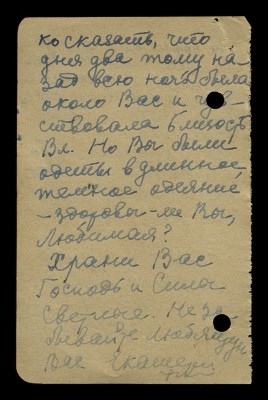 ко сказать, что
дня два тому на-
зад всю ночь была
около Вас и чув-
ствовала близость
Вл. Но Вы были
одеты в длинное,
темное одеяние
– здоровы-ли Вы,
Любимая?
Храни Вас
Господь и Силы
Светлые. Не за-
бывайте любящую
Вас